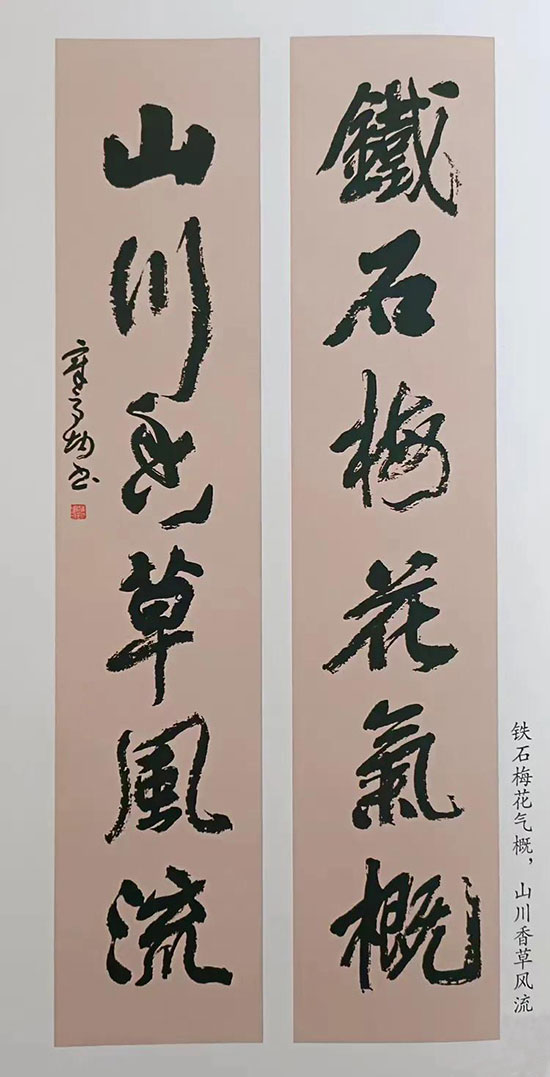 鐵石梅花氣概
山川香草風流
铁石梅花气概，山川香草风流